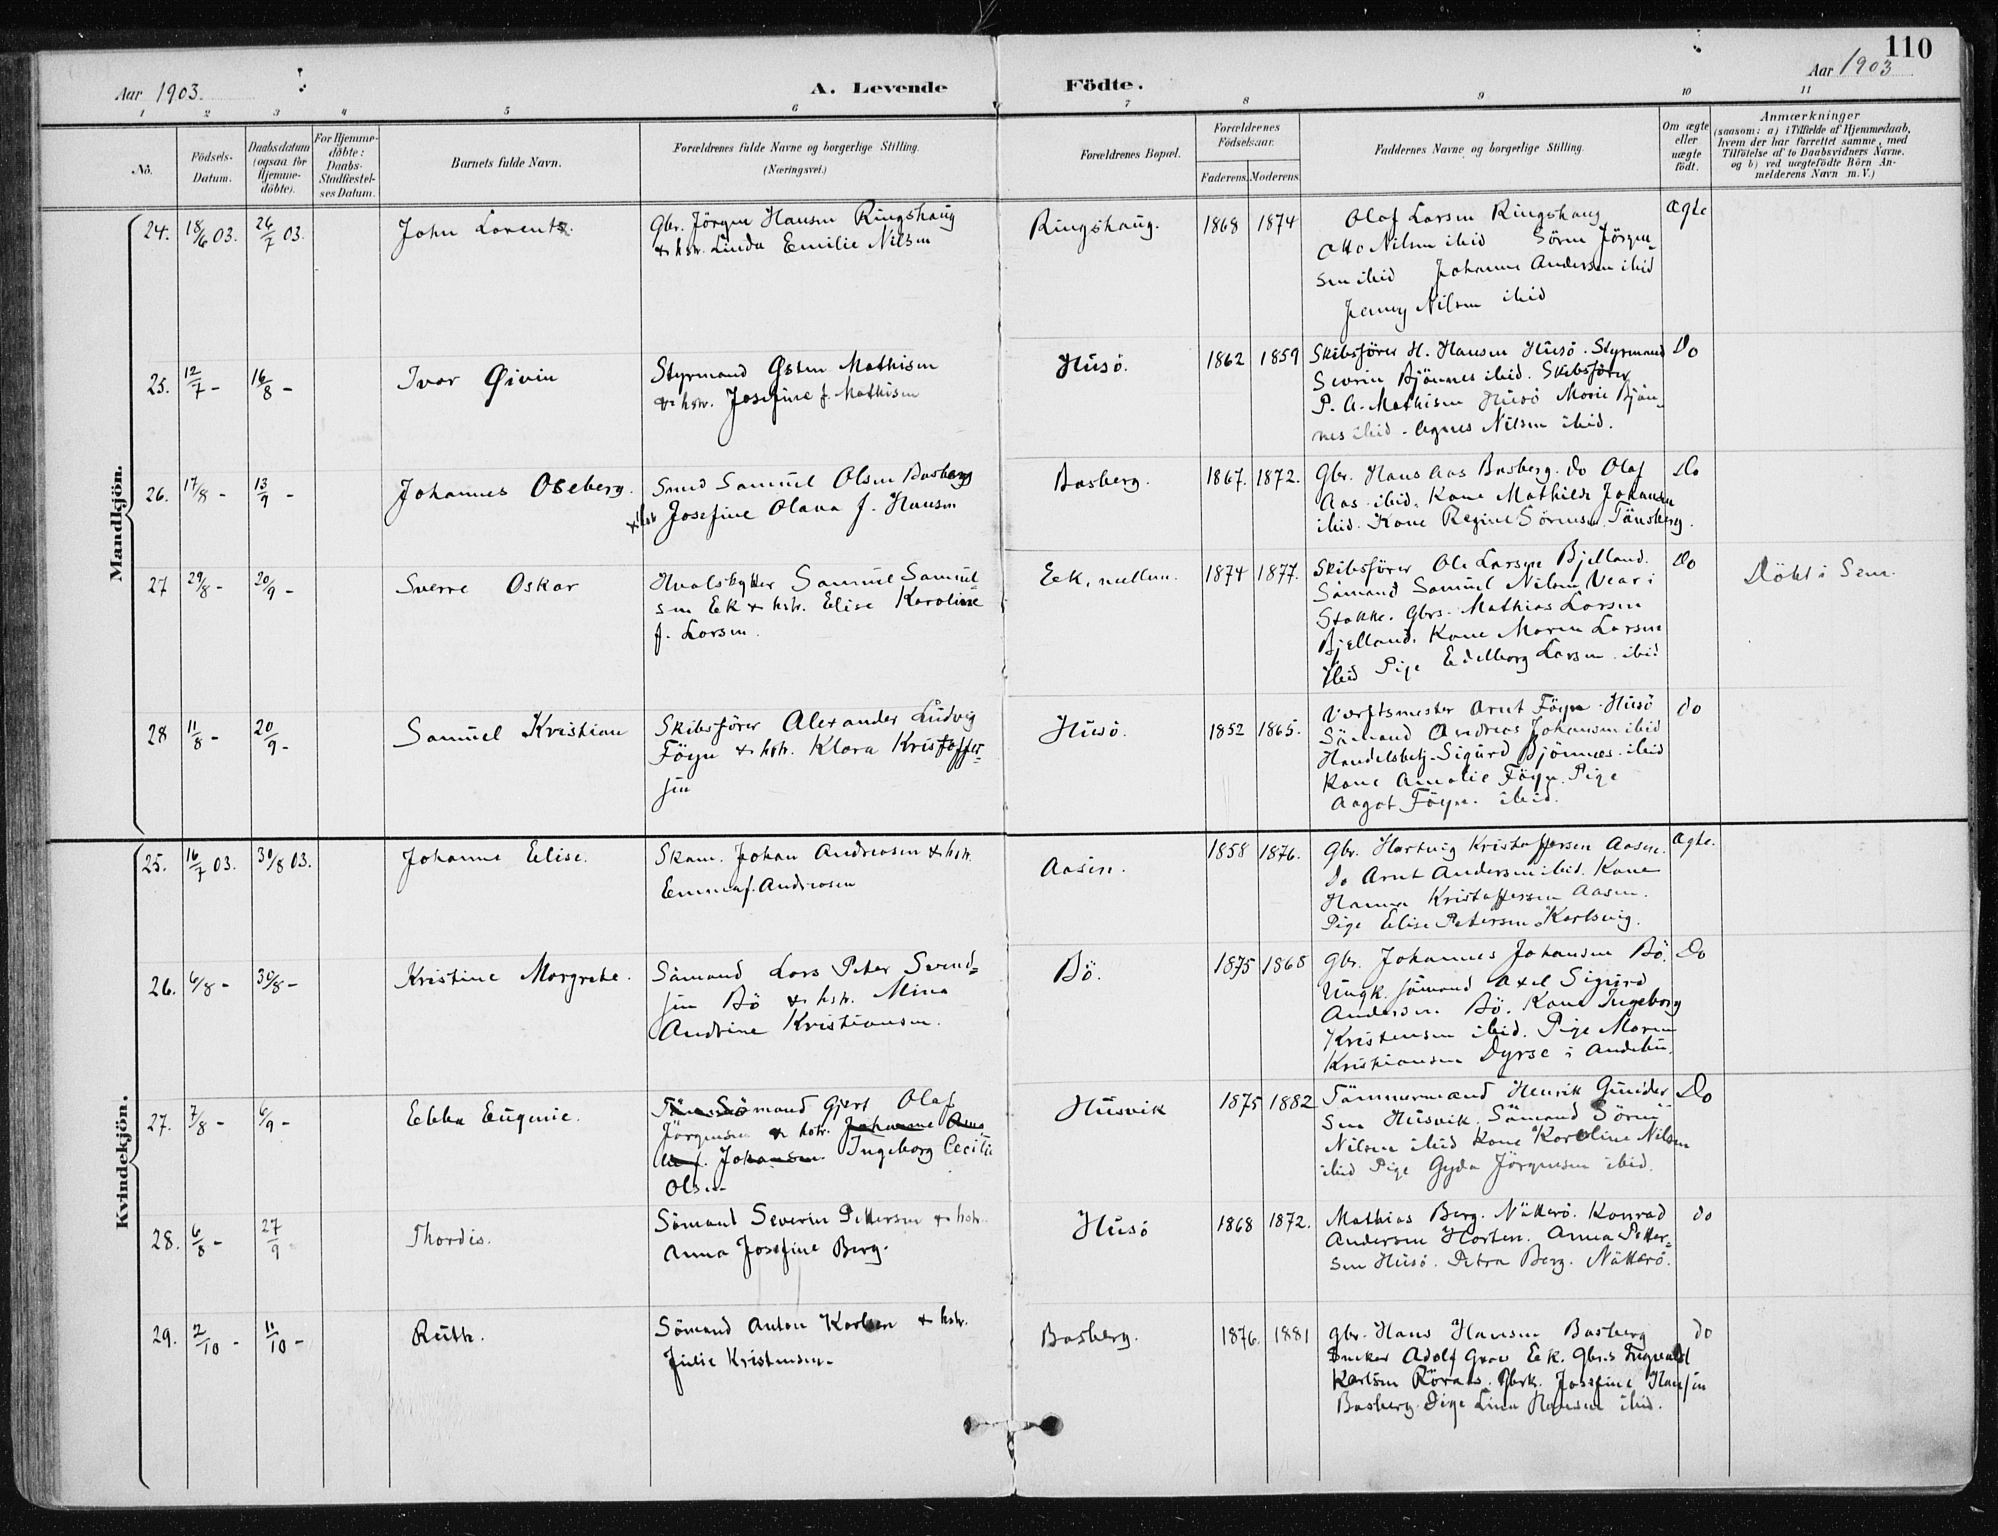 110
Aar 1903.
A. Levende Födte.
Aar 1903
1 2 3 4 5 6 7 8 9 10 11
No.
Födsels-
Datum.
Daabsdatum
(ogsaa for
Hjemme-
döbte).
For Hjemme-
döbte:
Daabs-
Stadfæstel-
ses Datum.
Barnets fulde Navn.
Forældrenes fulde Navne og borgerlige Stilling.
(Næringsvei.)
Forældrenes Bopæl.
Forældrenes
Födselsaar.
Faderens. Moderens.
Faddernes Navne og borgerlige Stilling.
Om ægte
eller
uægte
födt.
Anmærkninger
(saasom: a) i Tilfælde af Hjemmedaab,
hvem der har forrettet samme, med
Tilföielse af to Daabsvidners Navne.
og b) ved uægtefödte Börn An-
melderens Navn m. V.)
Mandkjön.
24. 18/6 03. 26/7 03.
John Lorentz.
Gbr. Jörgen Hansen Ringshaug
& hstr. Linda Emilie Nilsen
Ringshaug.
1868 1874
Olaf Larsen Ringshaug
Otto Nilsen ibid Sören Jörgen-
sen ibid Johanne Andersen ibid
Jenny Nilsen ibid
ægte
25. 12/7 - 16/8 -
Ivar Øivin
Styrmand Østen Mathisen
& hstr. Josefine f. Mathisen
Husö.
1862 1859
Skibsförer H. Hansen Husö. Styrmand
Severin Bjönnes ibid. Skibsförer
P. A. Mathisen Husö Marie Bjön-
nes ibid - Agnes Nilsen ibid.
Do
26. 17/8 - 13/9 -
Johannes Oseberg.
Smed Samuel Olsen Basberg
& hstr Josefine Olava f. Hansen
Basberg.
1867. 1872.
Gbr. Hans Aas Basberg. do Olaf
Aas ibid. Kone Mathilde Johansen
ibid. Kone Regine Sörensen Tönsberg.
Do
27 29/8 - 20/9 -
Sverre Oskar
Hvalskytter Samuel Samuel-
sen Ek & hstr. Elise Karoline
f. Larsen.
Eek, mellem.
1874 1877.
Skibsförer Ole Larsen Bjelland.
Sömand Samuel Nilsen Vear i
Stokke. Gbrs. Mathias Larsen
Bjelland. Kone Maren Larsen
ibid Pige Edelborg Larsen ibid
Do
Döbt i Sem.
28 11/8 - 20/9 -
Samuel Kristian
Skibsförer Alexander Ludvig
Föyn & hstr. Klara Kristoffer-
sen
Husö.
1852 1865.
Værftsmester Arnt Föyn Husö
Sömand Andreas Johansen ibid
Handelsbetj. Sigurd Bjönnes ibid
Kone Amalie Föyn. Pige
Aagot Föyn. ibid.
do
Kvindekjön.
25. 16/7 03. 30/8 03.
Johanne Elise.
Skom. Johan Andreasen & hstr.
Emma f. Andreasen
Aasen.
1858 1876.
Gbr. Hartvig Kristoffersen Aasen.
do Arnt Andersen ibid. Kone
Hanna Kristoffersen Aasen.
Pige Elise Petersen Karlsvig.
ægte.
26. 6/8 - 30/8 -
Kristine Margrethe.
Sömand Lars Peter Svend-
sen Bö & hstr. Mina
Andrine Kristiansen.
Bö.
1875 1868
Gbr. Johannes Johansen Bö.
Ungk. sömand Axel Sigurd
Andersen Bö. Kone Ingeborg
Kristensen ibid. Pige Maren
Kristiansen Dyrsø i Andebu.
Do
27. 7/8 - 6/9 -
Ebba Eugenie.
Sömand Gjert Olaf
Jörgensen & hstr. Johanne
f. Johansen. Ingeborg Cecilie
Olsen
Husvik
1875 1882
Tömmermand Henrik Gunder
sen Husvik. Sömand Sören
Nilsen ibid Kone Karoline Nilsen
ibid Pige Gyda Jörgensen ibid.
Do
28. 6/8 - 27/9 -
Thordis.
Sömand Severin Pettersen & hstr.
Anna Josefine Berg.
Husö
1868 1872.
Mathias Berg. Nötterö. Konrad
Andersen Horten. Anna Petter-
sen Husö. Petra Berg. Nötterö.
do
29. 2/10 - 11/10 -
Ruth.
Sömand Anton Karlsen & hstr.
Julie Kristensen.
Basberg.
1876. 1881
gbr. Hans Hansen Basberg
Adolf Eek. Gbrs Ingvald
Karlsen Röraas. Gbrk. Josefine Hansen
Basberg. Pige Lina Hansen ibid.
do